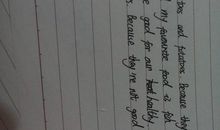 and potatoes. Because they
my favourite food is fish
good for our healthy
Because they're not good